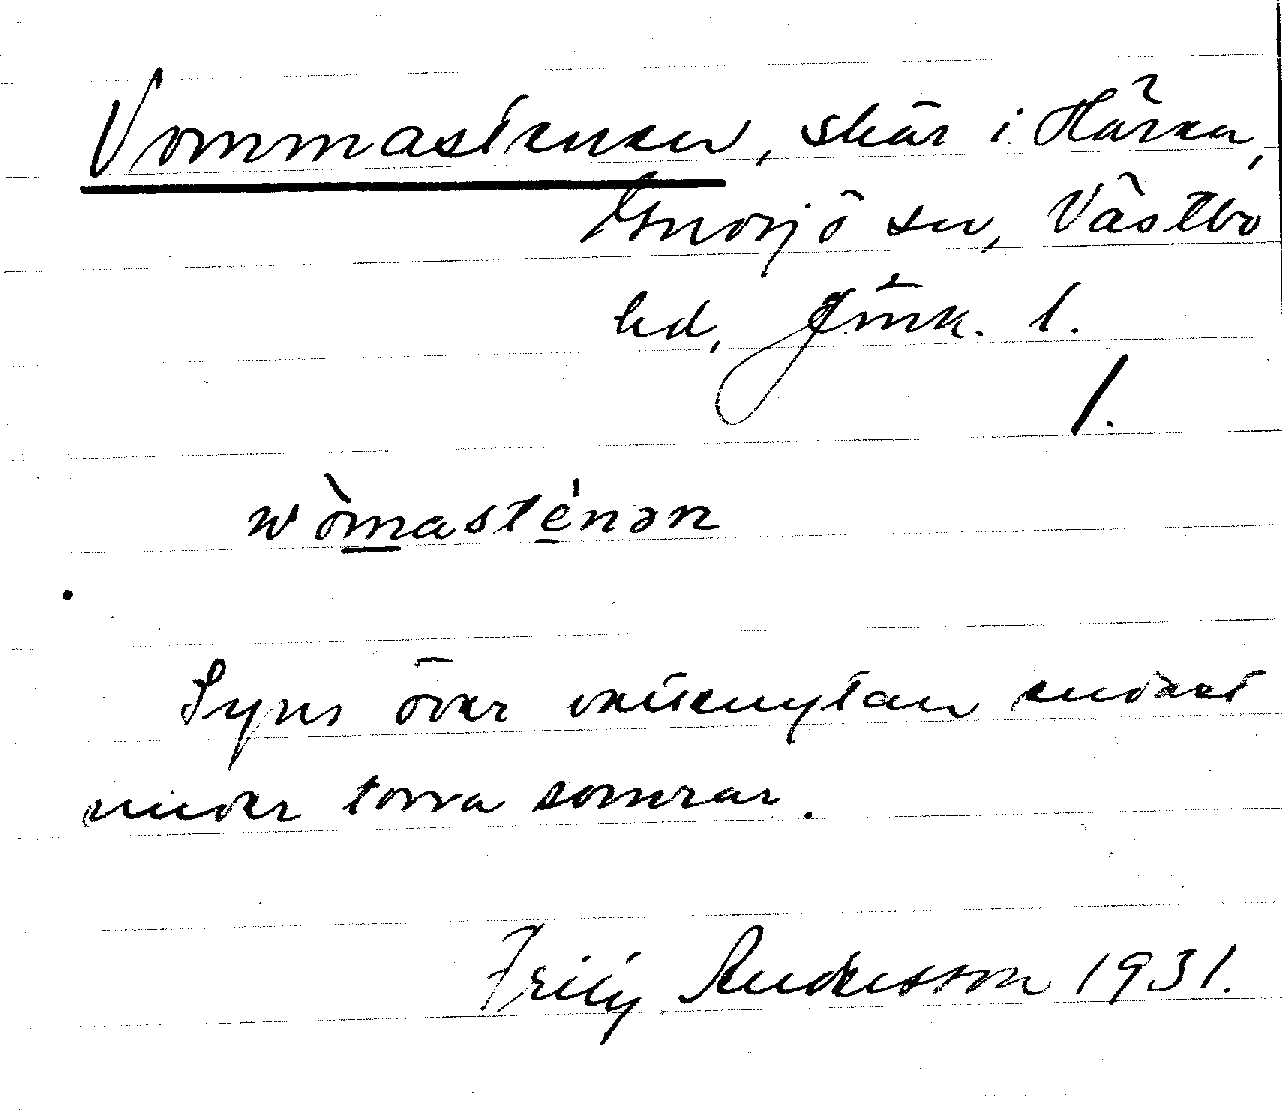 Vommastenen, skär i Hären,
Gnosjö sn, Västbo
hd, Jönk. l.
1.
wòmasténən
Syns över vattenytan endast
under torra somrar.
Andersson 1931.